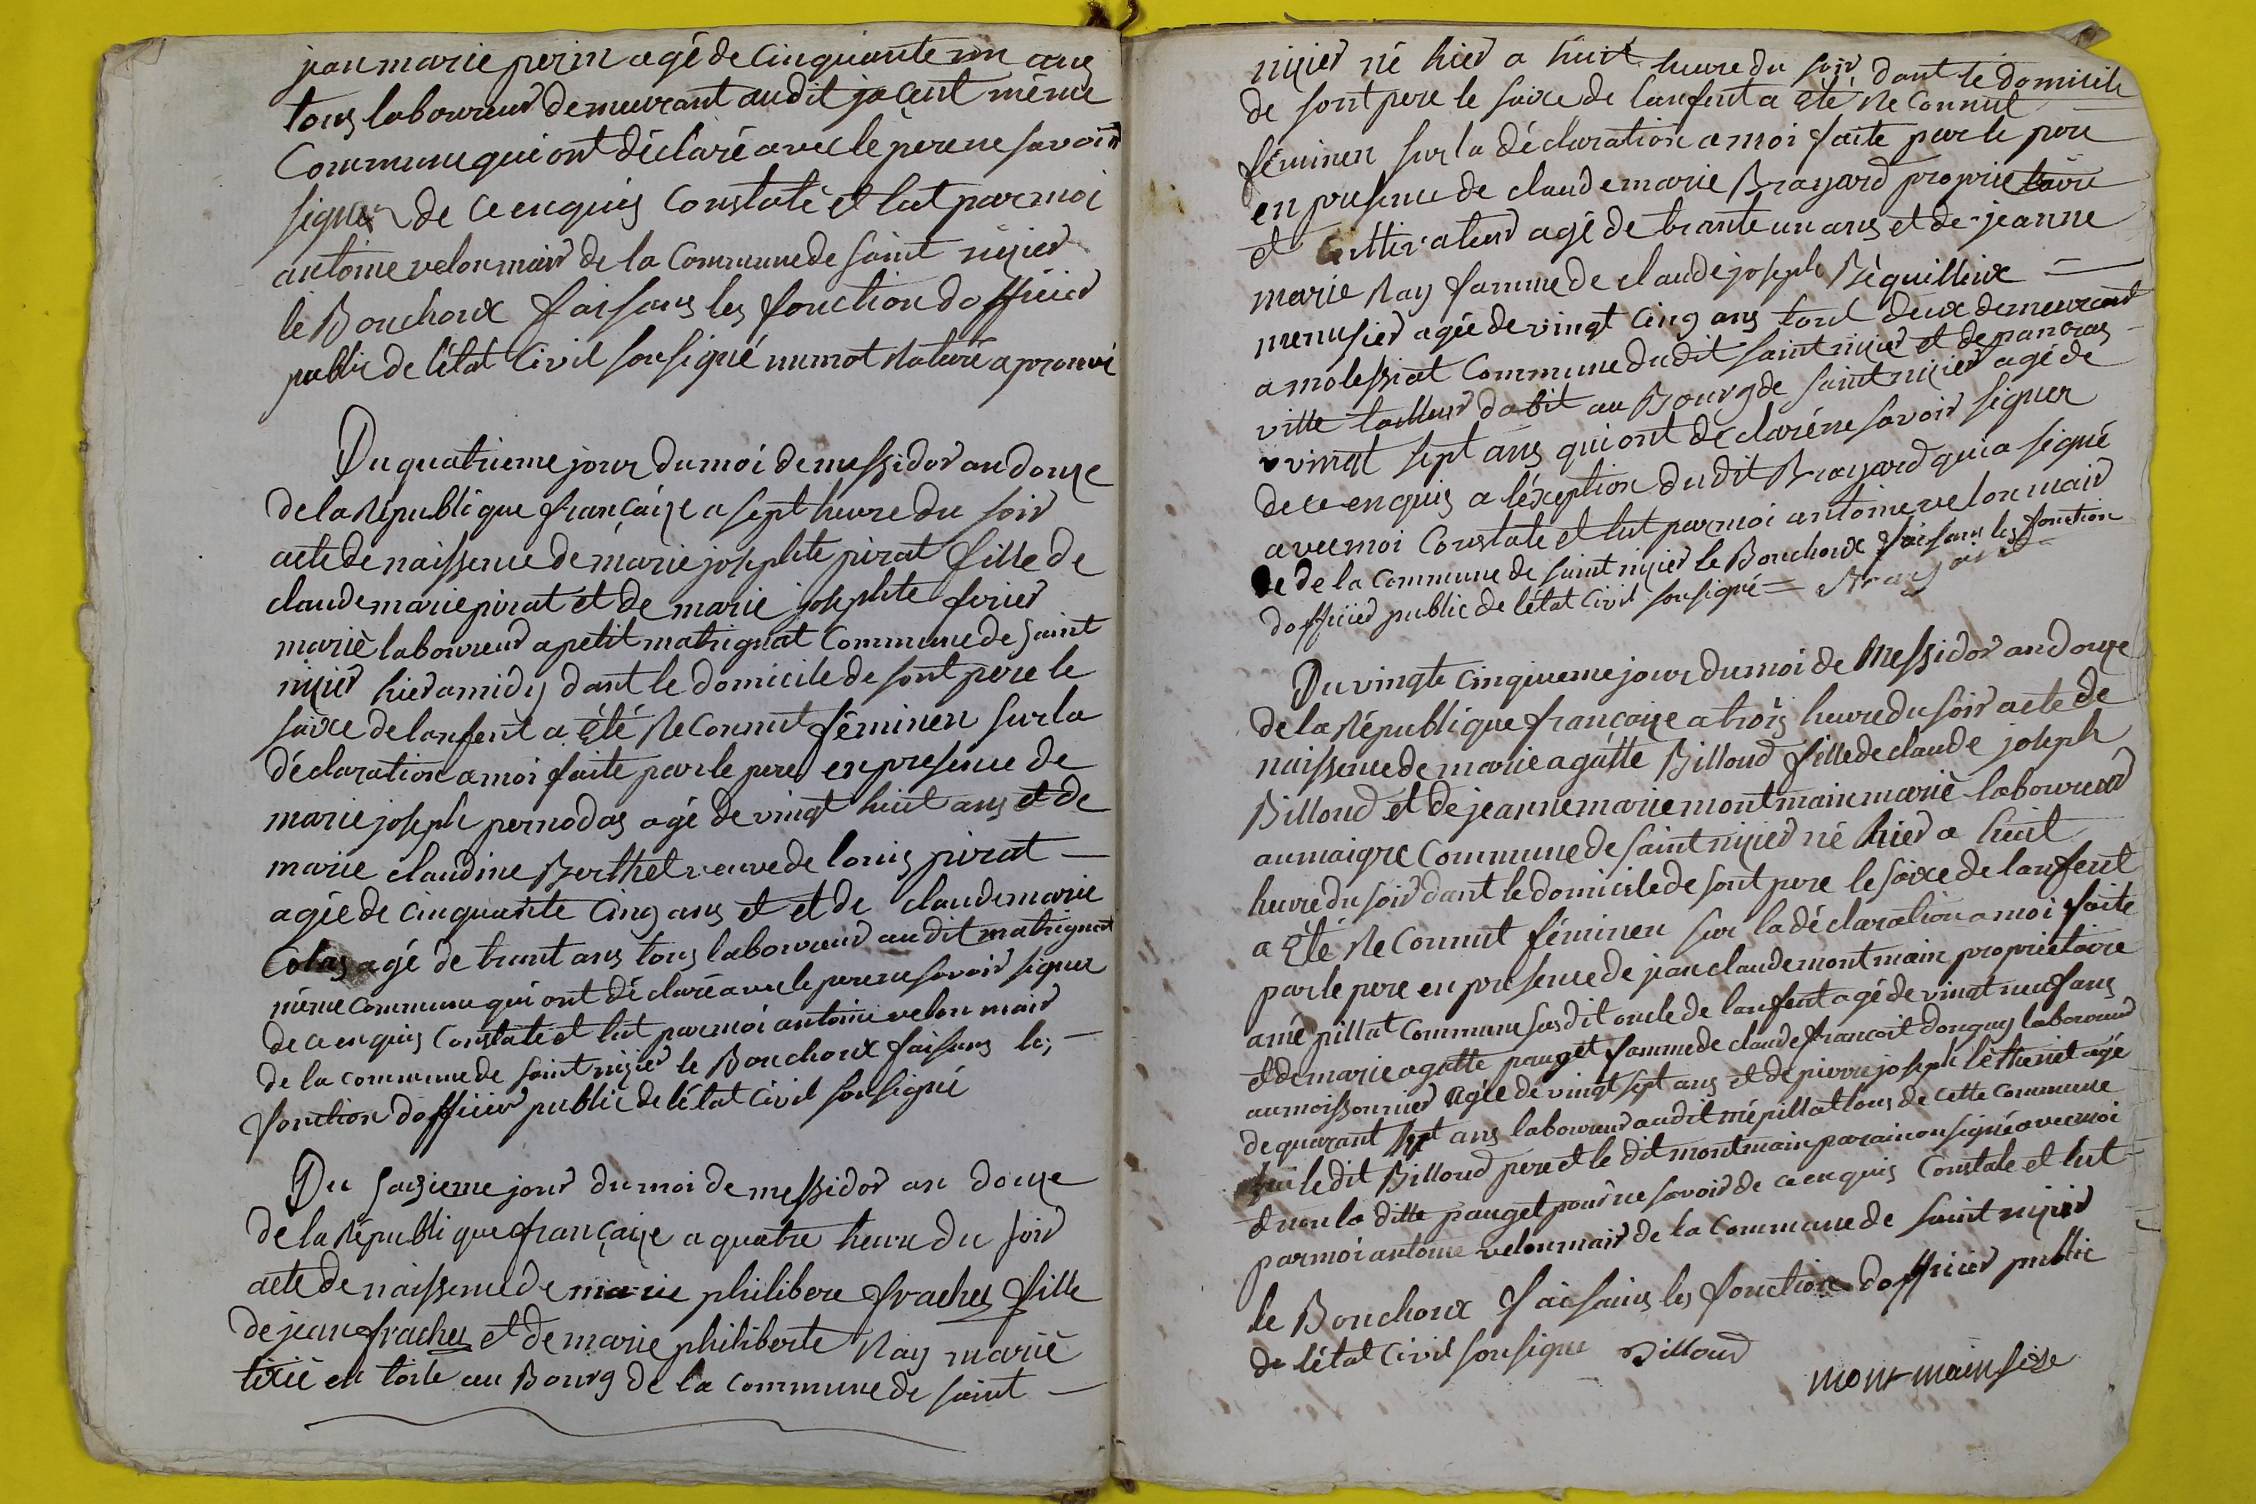 jean marie perin agé de cinquante un ans
tous laboureur demeurant audit jacent même
Commune qui ont déclaré avec le père ne savoir
signer de ce enquis Constaté et lut par moi
antoine velon mair de la Commune de saint nizier
le Bouchoux faisans les fonction dofficier
public de l'état Civil sousigné un mot raturé aprouvé
Du quatrieme jour du moi de messidor an douze
de la République françaize a sept heure du soir
acte de naissence de marie josephte pirat fille de
claude marie pirat et de marie josephte ferier
marié laboureur a petit matrignat Commune de saint
nizier hier a midy dant le domicile de sont pere le
saixe de lanfent a Eté Reconnut féminen sur la
déclaration a moi faite par le pere en presence de
marie joseph pernodas agé de vingt huit ans et de
marie claudine Berthet veuve de louis pirat
agée de cinquante cinq ans et et de claude marie
Colas agé de trant ans tous laboureur au dit matrignat
même commune qui ont déclaré avec le pere ne savoir signer
de ce enquis Constaté et lut par moi antoine velon mair
de la commune de saint nizier le Bouchoux faisans les
fonction dofficier public de l'état Civil sousigné
Du saizieme jour du moi de messidor an douze
de la République françaize a quatre heure du soir
acte de naissence de marie philibere fraches fille
de jean fraches et de marie philiberte Ray marié
tixié en toile au Bourg de la commune de saint
nizier né hier a huit heure du soir dant le domicile
de sont pere le saixe de lanfent a Eté Reconnut
féminen sur la déclaration a moi faite par le pere
en presence de claude marie Brayard proprietaire
et Cultivateur agé de trante un ans et de jeanne
marie Ray famme de claude joseph Béquilleux
menusier agée de vingt cinq ans tout deux demeurant
a molessiat Commune dudit saint nizier et de pancras
vitte tailleur dabit au Bourg de saint nizier agé de
vingt sept ans qui ont déclaré ne savoir signer
de ce enquis a léxeption dudit Brayard qui a signé
avec moi Constate et lut par moi antoine velon mair
de de la Commune de saint nizier le Bouchoux faisans les fonction
dofficier public de l'état Civil sousigné = Brayard
Du vingte cinquieme jour du moi de Messidor an douze
de la République françaize a trois heure du soir acte de
naissence de marie agatte Billoud fille de claude joseph
Billoud et de jeanne marie montmain marié laboureur
au maigre Commune de saint nizier né hier a huit
heure du soir dant le domicile de sont pere le saixe de lanfent
a Eté Reconnut féminen sur la déclaration a moi faite
par le pere en presence de jean claude montmain propriétaire
a mé pillat Commune susdit oncle de lanfent agé de vingt neuf ans
et de marie agatte pauget famme de claude francoit donguy laboureur
au moissonnier agée de vingt sept ans et de pierre joseph lètheriet agé
de quarant sept ans laboureur audit mépillat tous de cette commune
le dit Billoud pere et le dit montmain parain on signé avec moi
et non la ditte pauget pour ne savoir de ce enquis Constate et lut
par moi antoine velon mair de la Commune de saint nizier
le Bouchoux faisans les fonction dofficier public
de l'état Civil sousigné Billoud
montmain